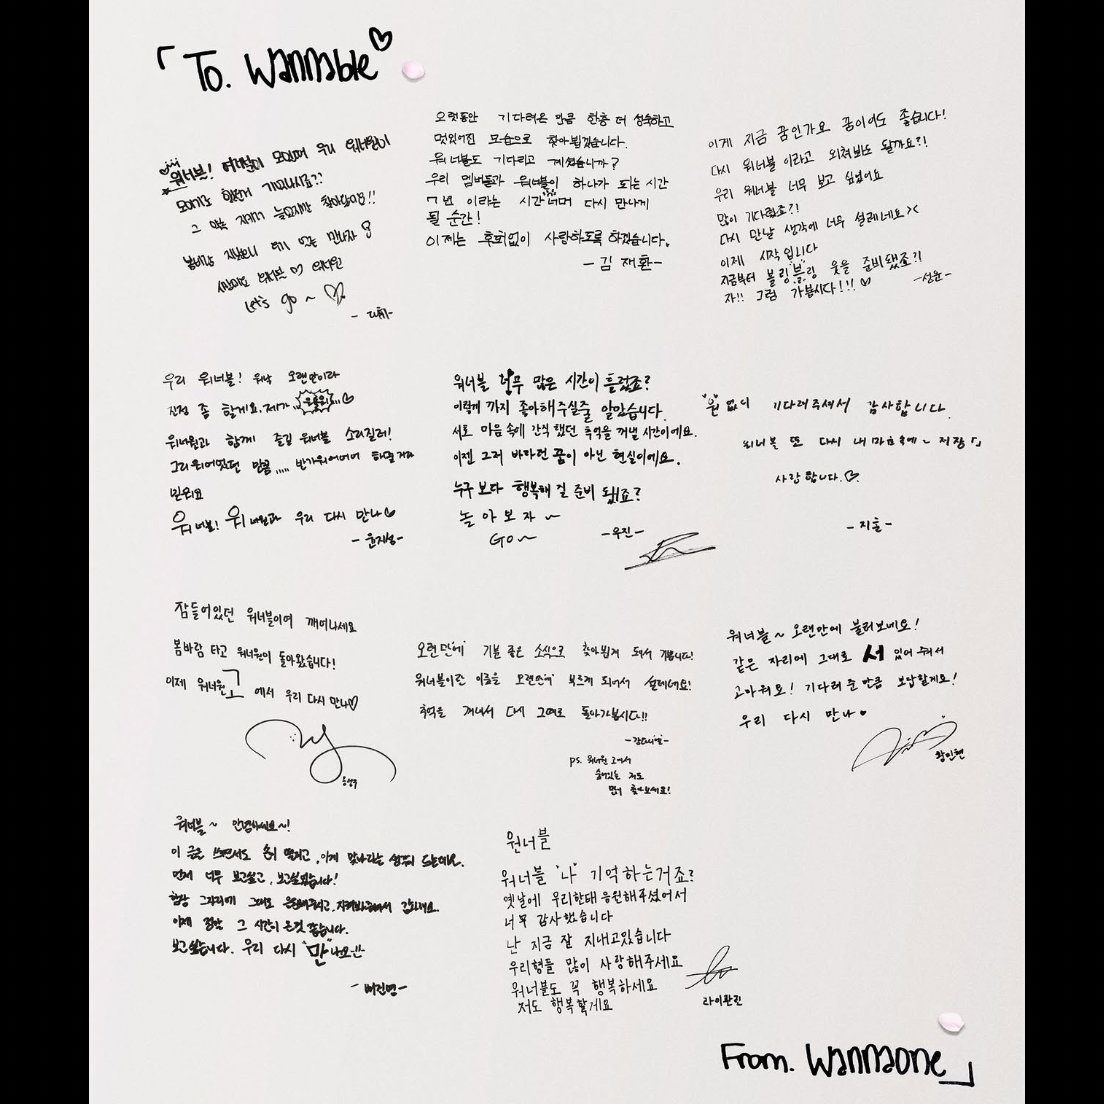 「To. Wannable♡
워너블! 우리 워너원이
기다리셨죠??
그 약속 지키러 늦었지만 찾아왔어요!!
만나자
워너블 ♡ 워너원
Let's go ~ ♡
- 대휘-
오랫동안 기다려온 만큼 한층 더 성숙하고
멋있어진 모습으로 찾아뵙겠습니다.
워너블도 기다리고 계셨습니까?
우리 멤버들과 워너블이 하나가 되는 시간
7년 이라는 시간 너머 다시 만나게
될 순간!
이제는 후회없이 사랑하도록 하겠습니다.
- 김 재환-
이게 지금 꿈인가요 꿈이어도 좋습니다!
다시 워너블 이라고 외쳐봐도 될까요?!
우리 워너블 너무 보고 싶었어요
많이 기다렸죠?!
다시 만날 생각에 너무 설레네요 ><
이제 시작 입니다
지금부터 볼링"블"링 웃을 준비됐죠?!
자!! 그럼 가봅시다!!! ♡
-성운-
우리 워너블! 워낙 오랜만이라
진정 좀 할게요. 제가
워너원과 함께 즐길 워너블 소리질러!
그리워어어었던 만큼 ,,,,, 반가워어어어 해줄 거라
믿어요
워너블! 워너원과 우리 다시 만나♡
- 윤지성-
워너블 너무 많은 시간이 흘렀죠?
이렇게 까지 좋아해주실줄 알았습니다.
서로 마음 속에 간직 했던 추억을 꺼낼 시간이에요.
이젠 그저 바라던 꿈이 아닌 현실이에요.
누구보다 행복해 질 준비 됐죠?
놀 아 보 자 ~
GO~
-우진-
"원"없이 기다려주셔서 감사합니다.
워너블 또 다시 내 마음속에~ 저장「」
사랑합니다.♡
- 지훈 -
잠들어있던 워너블이여 깨어나세요
봄바람 타고 워너원이 돌아왔습니다!
이제 워너원고 에서 우리 다시 만나♡
옹성우
오랜만에 기분 좋은 소식으로 찾아뵙게 돼서 기쁩니다!
워너블이란 이름을 오랜만에 부르게 되어서 설레네요!
추억을 꺼내서 다시 그때로 돌아가봅시다!!
-강다니엘-
ps. 워너원 고에서
숨어있는 저도
많이 찾아보세요!
워너블~ 오랜만에 불러보네요!
같은 자리에 그대로 서 있어 줘서
고마워요! 기다려준 만큼 보답할게요!
우리 다시 만나♥
황민현
워너블~ 안녕하세요~!
이 글을 쓰면서도 손이 떨리고, 이게 맞나라는 생각이 드는데요.
먼저 너무 보고싶고, 보고싶었습니다!
항상 그자리에 그대로 응원해주시고, 지켜봐주셔서 감사해요.
이제 정말 그 시간이 온것 같습니다.
보고싶습니다. 우리 다시 "만"나요!!
- 배진영-
워너블
워너블 '나' 기억하는거죠?
옛날에 우리한태 응원해주셨어서
너무 감사했습니다
난 지금 잘 지내고있습니다
우리형들 많이 사랑해주세요
워너블도 꼭 행복하세요
저도 행복할게요
라이관린
From. Wannaone」